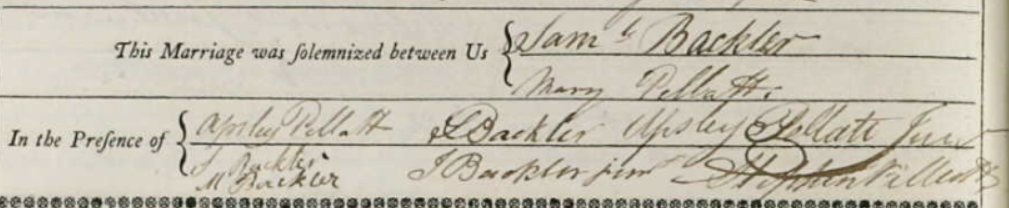 This Marriage was ſolemnized between Us { Saml Backler
Mary Pellatt
In the Preſence of { Apsley Pellatt S Backler Apsley Pellatt Junr
S Backler J Backler junr Stephen Pellatt
M Backler